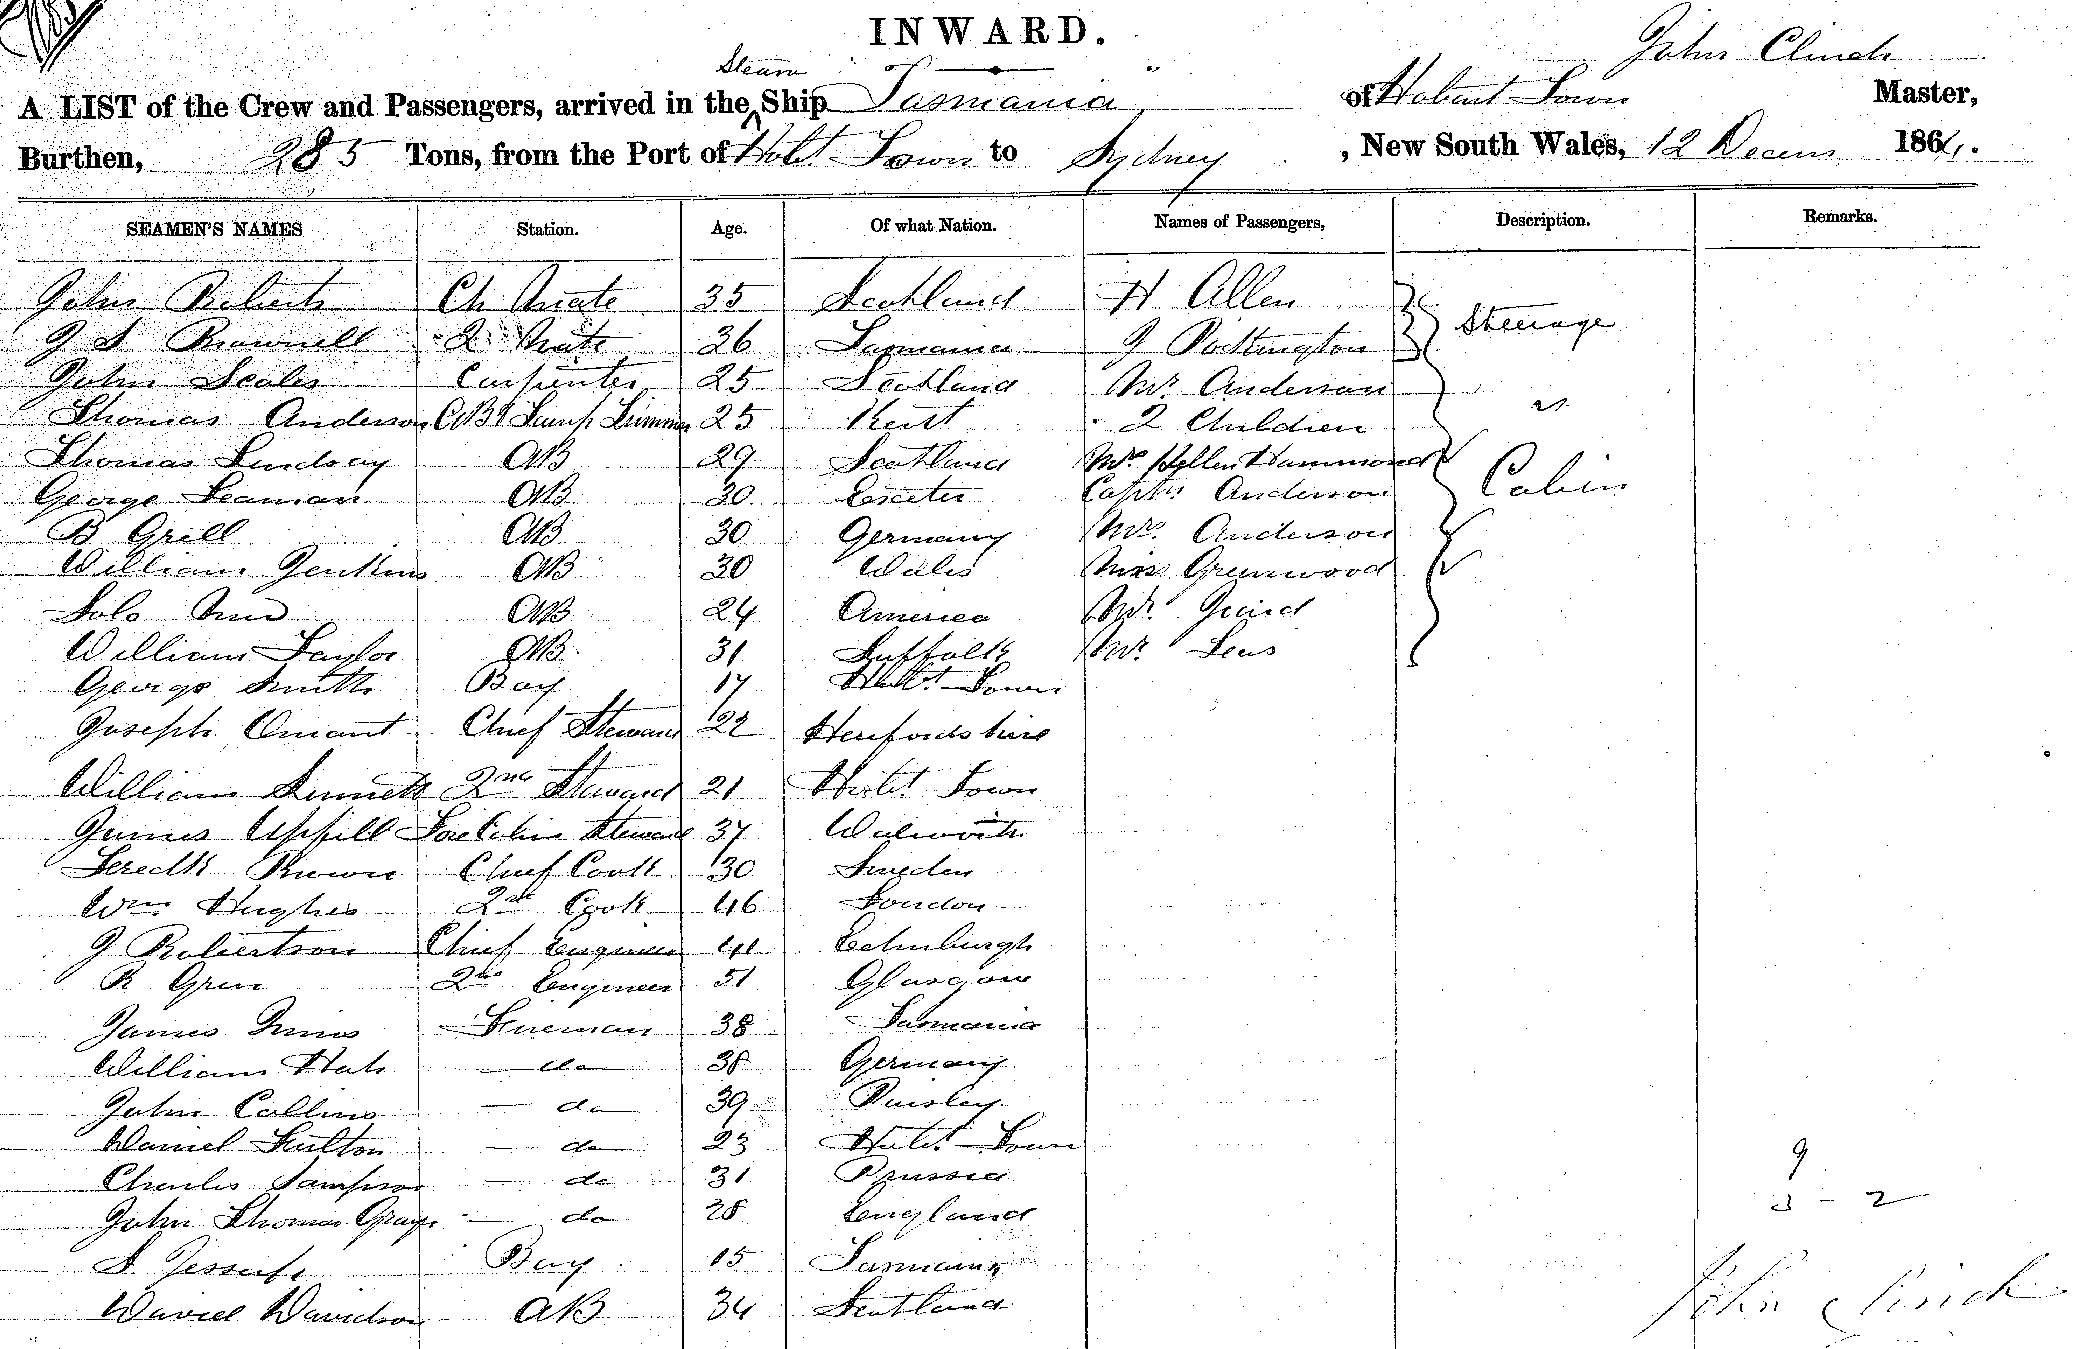 INWARD.
John Clinch
Steam
A LIST of the Crew and Passengers, arrived in the Ship Tasmania of Hobart Town Master,
Burthen, 285 Tons, from the Port of Hobt Town to Sydney, New South Wales, 12 Decem 1864.
SEAMEN'S NAMES Station. Age. Of what Nation. Names of Passengers, Description. Remarks.
John Roberts Ch Mate 35 Scotland H Allen
Steerage
G S Brownell 2 Mate 26 Tasmania J Pottington
John Scales Carpenter 25 Scotland Mrs Anderson "
Thomas Anderson AB & Lamp Trimmer 25 Kent 2 Children
Thomas Lindsay AB 29 Scotland Hammond
George Seaman AB 30 Exeter Captn Anderson Cabin
B Grell AB 30 Germany Mrs. Anderson
William Jenkins AB 30 Wales Miss Greenwood
Solo AB 24 America Mr.
William Taylor AB 31 Suffolk Mr. Lees
George Smith Boy 17 Hobt. Town
Joseph Chief Steward 22 Herefordshire
William Sinnett 2nd Steward 21 Hobt Town
James Uphill Fore Cabin Steward 37 Walworth
Fredk Brown Chief Cook 30 Sweden
Wm Hughes 2nd Cook 46 London
J Robertson Chief Engineer 41 Edinburgh
R Gren 2nd Engineer 51 Glasgow
James Innis Fireman 38 Tasmania
William do 38 Germany
John Collins do 39 Paisley
Daniel Fulton do 23 Hobt Town
9
Charles Sampson do 31 Prussia
3 - 2
John Thomas Gray do 28 England
S Jessup Boy 15 Tasmania
David Davidson AB 34 Scotland
John Clinch